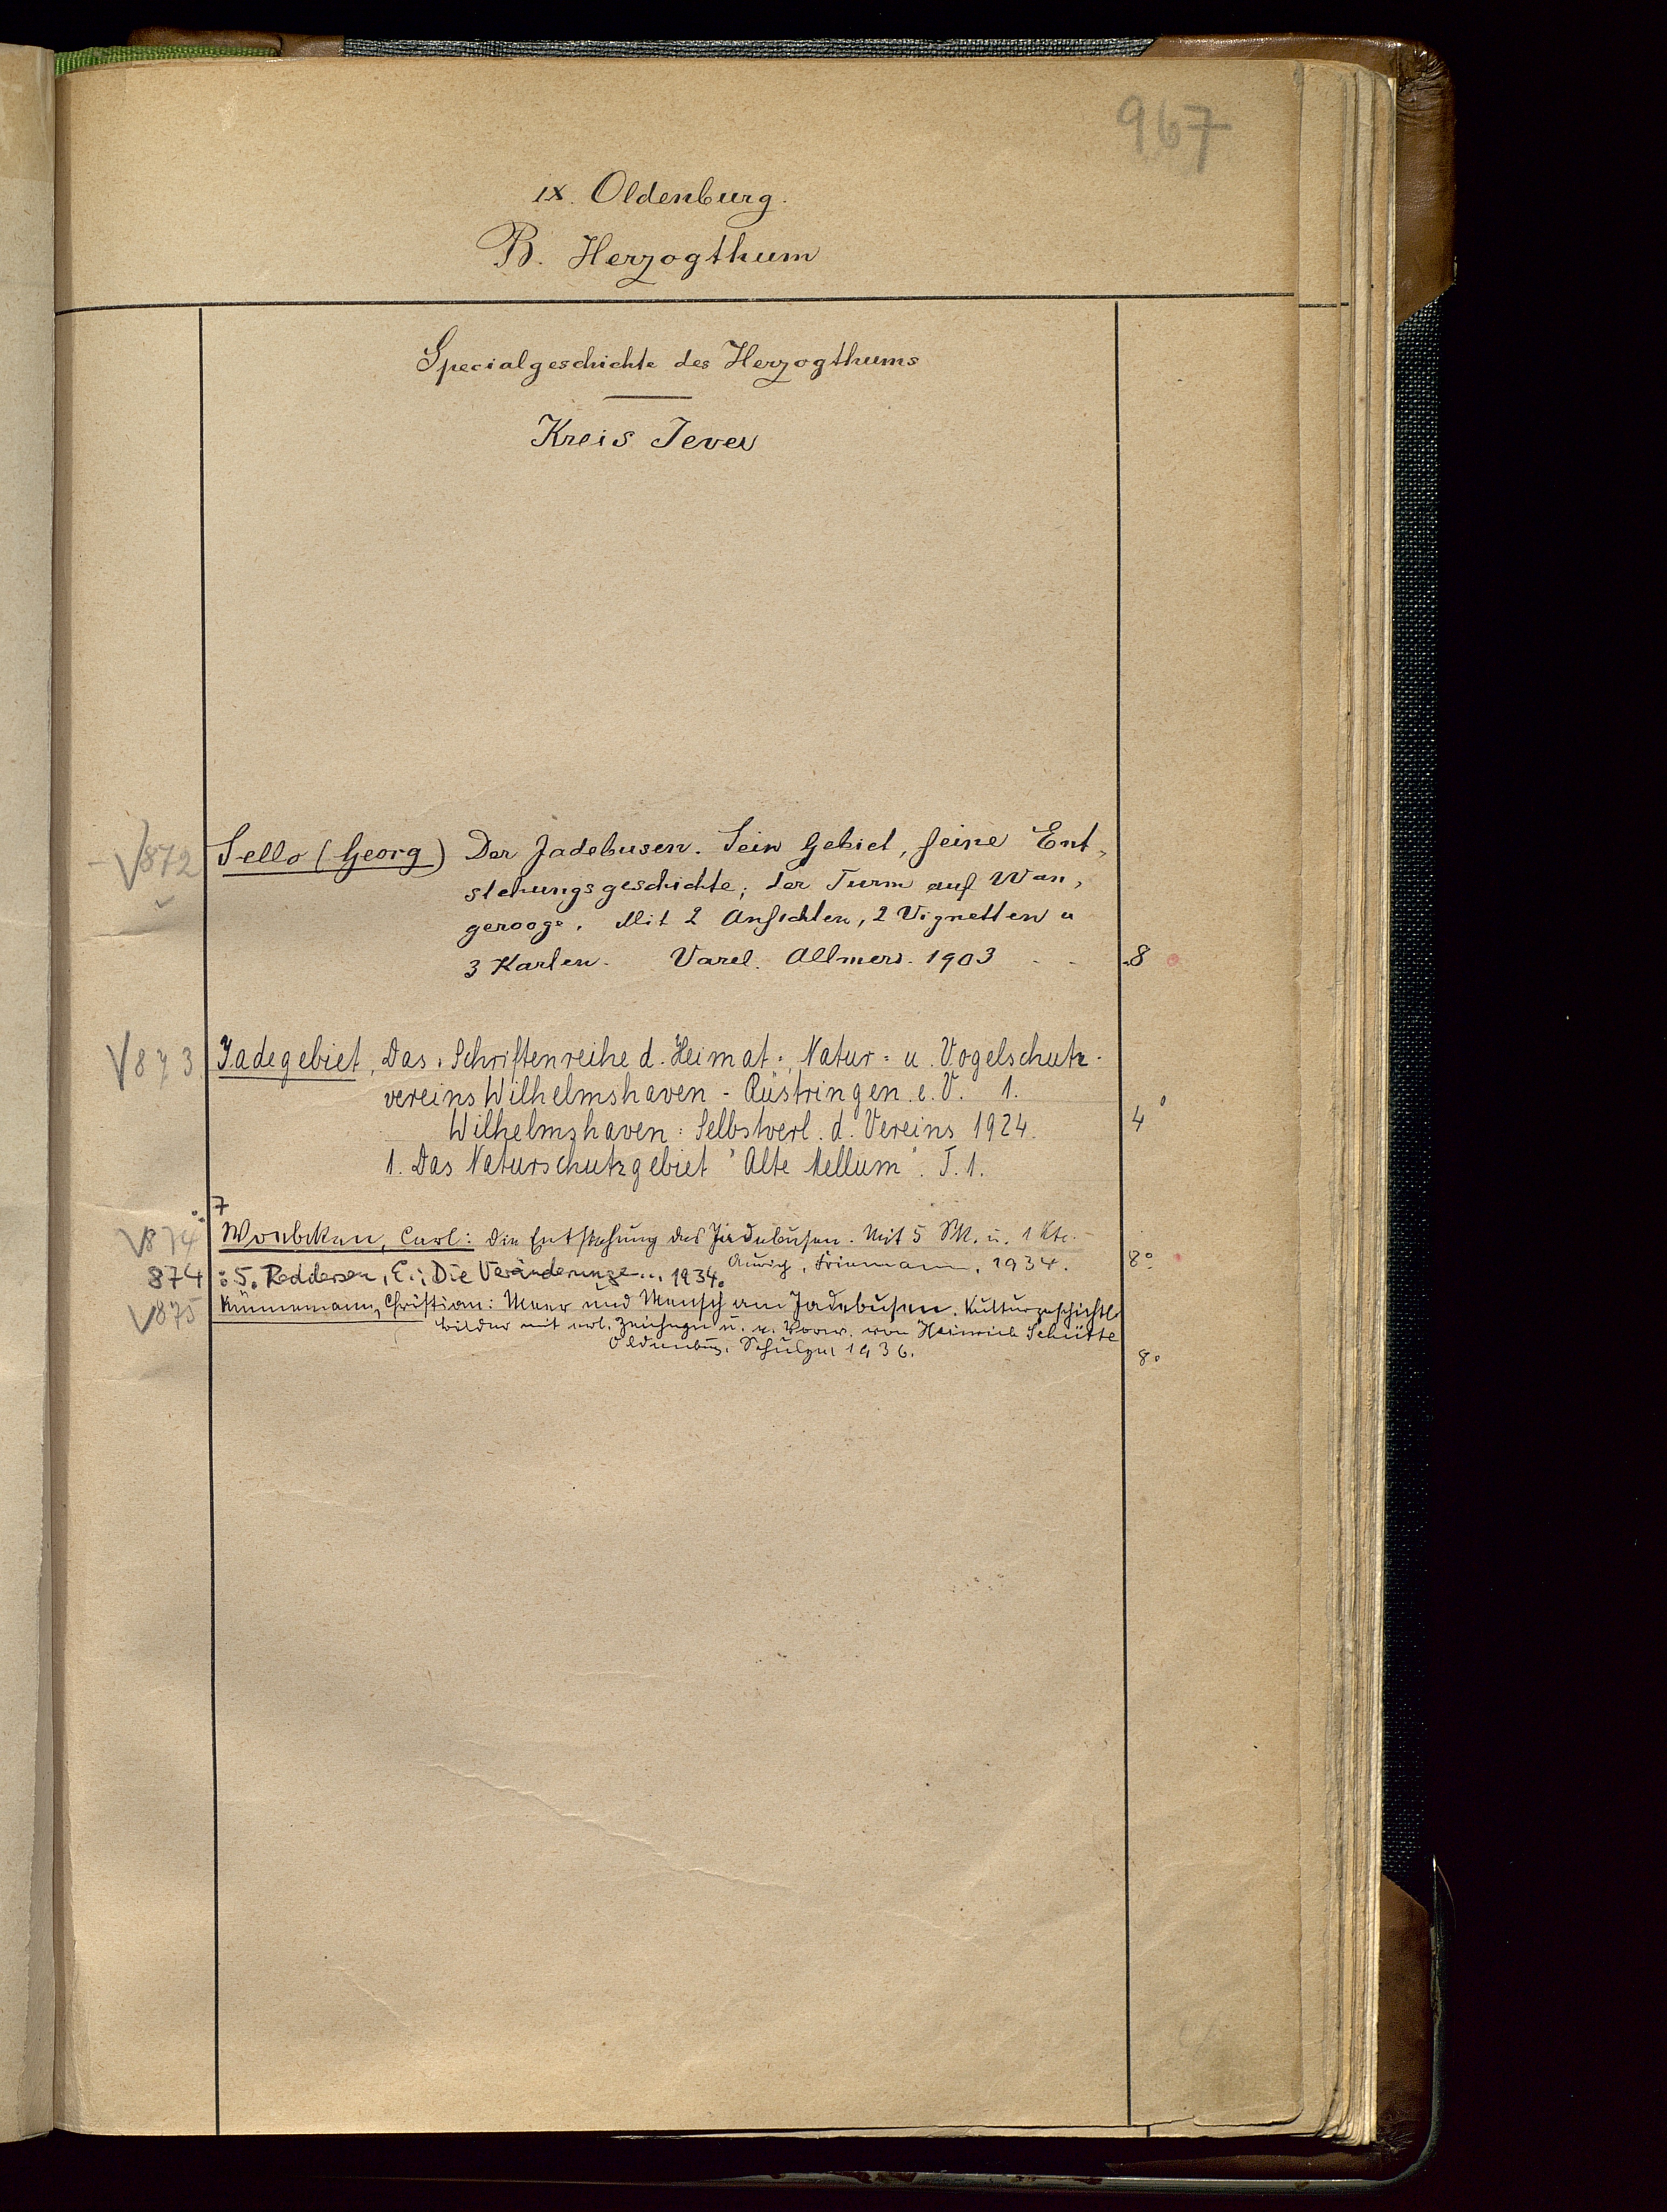 967
IX. Oldenburg.
B. Herzogthum
Specialgeschichte des Herzogthums
Kreis Jever
V872 Sello (Georg) Der Jadebusen. Sein Gebiet, seine Ent-
stehungsgeschichte; der Turm auf Wan-
gerooge. Mit 2 Ansichten, 2 Vignetten u
3 Karten. Varel. Allmers. 1903 - - 8
V873 Jadegebiet, Das. Schriftenreihe d. Heimat=, Natur= u. Vogelschutz-
vereins Wilhelmshaven - Rüstringen e. V. 1.
Wilhelmshaven: Selbstverl. d. Vereins 1924. 4°
1. Das Naturschutzgebiet "Alte Mellum". T. 1.
7
V874 Woebcken, Carl: Die Entstehung des Jadebusen. Mit 5 Sk. u. 1 Kte.
Aurich, Friemann, 1934. 8°
874 : 5. Reddersen, E.: Die Veränderunge... 1934.
V875 Künnemann, Christian: Meer und Mensch am Jadebusen. Kulturgeschichtl.
Bilder mit erl. Zeichngn u. e. Vorw. von Heinrich Schütte
Oldenburg, Schulze 1936. 8°